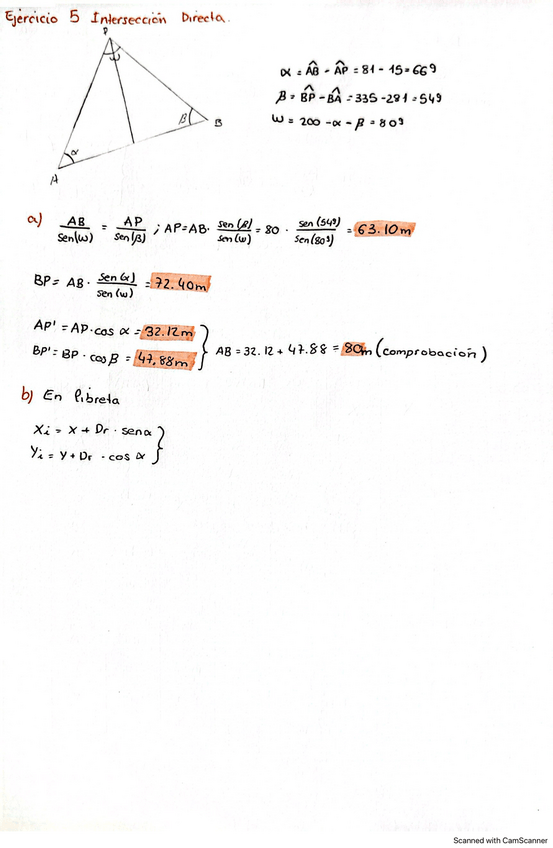 Ejercicio 5 Intersección Directa.
P
ω
α = AB̂ - AP̂ = 81 - 15 = 66g
β B
β = BP̂ - BÂ = 335 - 281 = 54g
ω = 200 - α - β = 80g
α
A
a) AB/sen(ω) = AP/sen(β) ; AP = AB · sen(β)/sen(ω) = 80 · sen(54g)/sen(80g) = 63.10m
BP = AB · sen(α)/sen(ω) = 72.40m
AP' = AP · cos α = 32.12m
BP' = BP · cos β = 47,88m } AB = 32.12 + 47.88 = 80m (comprobación)
b) En libreta
Xi = X + Dr · senα
Yi = Y + Dr · cos α }
Scanned with CamScanner